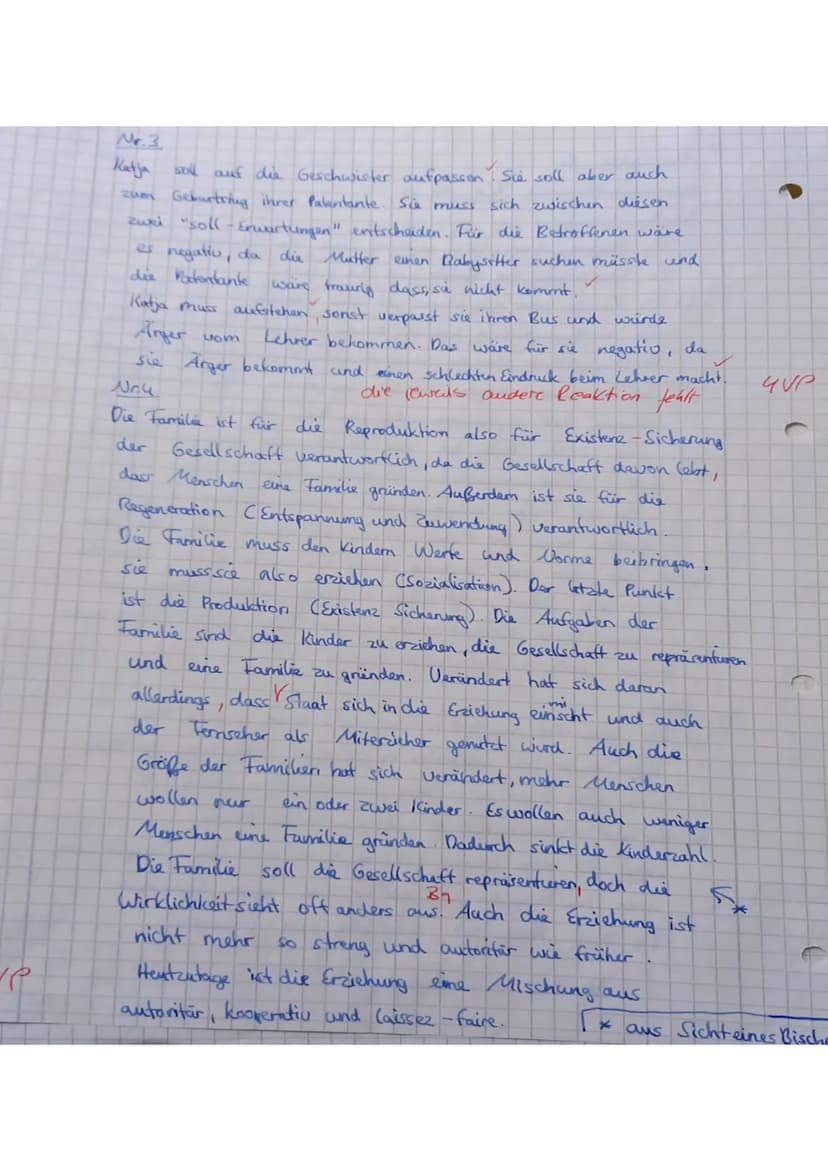 Nr. 3
Katja soll auf die Geschwister aufpassen. Sie soll aber auch
zum Geburtstag ihrer Patentante. Sie muss sich zwischen diesen
zwei "soll-Erwartungen" entscheiden. Für die Betroffenen wäre
es negativ, da die Mutter einen Babysitter suchen müsste und
die Patentante wäre traurig dass, sie nicht kommt.
Katja muss aufstehen, sonst verpasst sie ihren Bus und würde
Ärger vom Lehrer bekommen. Das wäre für sie negativ, da
sie Ärger bekommt und einen schlechten Eindruck beim Lehrer macht.
4VP
Nr. 4
die jeweils andere Reaktion fehlt
Die Familie ist für die Reproduktion also für Existenz-Sicherung
der Gesellschaft verantwortlich, da die Gesellschaft davon lebt,
dass Menschen eine Familie gründen. Außerdem ist sie für die
Regeneration (Entspannung und Zuwendung) verantwortlich.
Die Familie muss den Kindern Werte und Norme beibringen,
sie muss sie also erziehen (Sozialisation). Der letzte Punkt
ist die Produktion (Existenz Sicherung). Die Aufgaben der
Familie sind die Kinder zu erziehen, die Gesellschaft zu repräsentieren
und eine Familie zu gründen. Verändert hat sich daran
allerdings, dass Staat sich in die Erziehung einmischt und auch
der Fernseher als Miterzieher genutzt wird. Auch die
Größe der Familien hat sich verändert, mehr Menschen
wollen nur ein oder zwei Kinder. Es wollen auch weniger
Menschen eine Familie gründen. Dadurch sinkt die Kinderzahl.
Die Familie soll die Gesellschaft repräsentieren, doch die
Wirklichkeit sieht oft anders aus. Auch die Erziehung ist
nicht mehr so streng und autoritär wie früher.
Heutzutage ist die Erziehung eine Mischung aus
autoritär, kooperativ und laissez-faire.
* aus Sicht eines Bisch